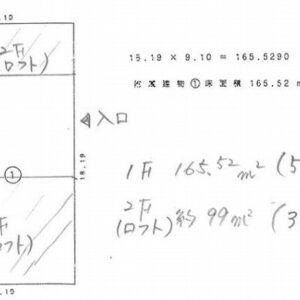 .10
2F
(ロフト)
18.19 × 9.10 = 165.5290
附属建物①床面積 165.52 m
◀入口
18.19
①
1F 165.52m² (5
2F
(ロフト) 約99m² (3
2F
(ロフト)
.10